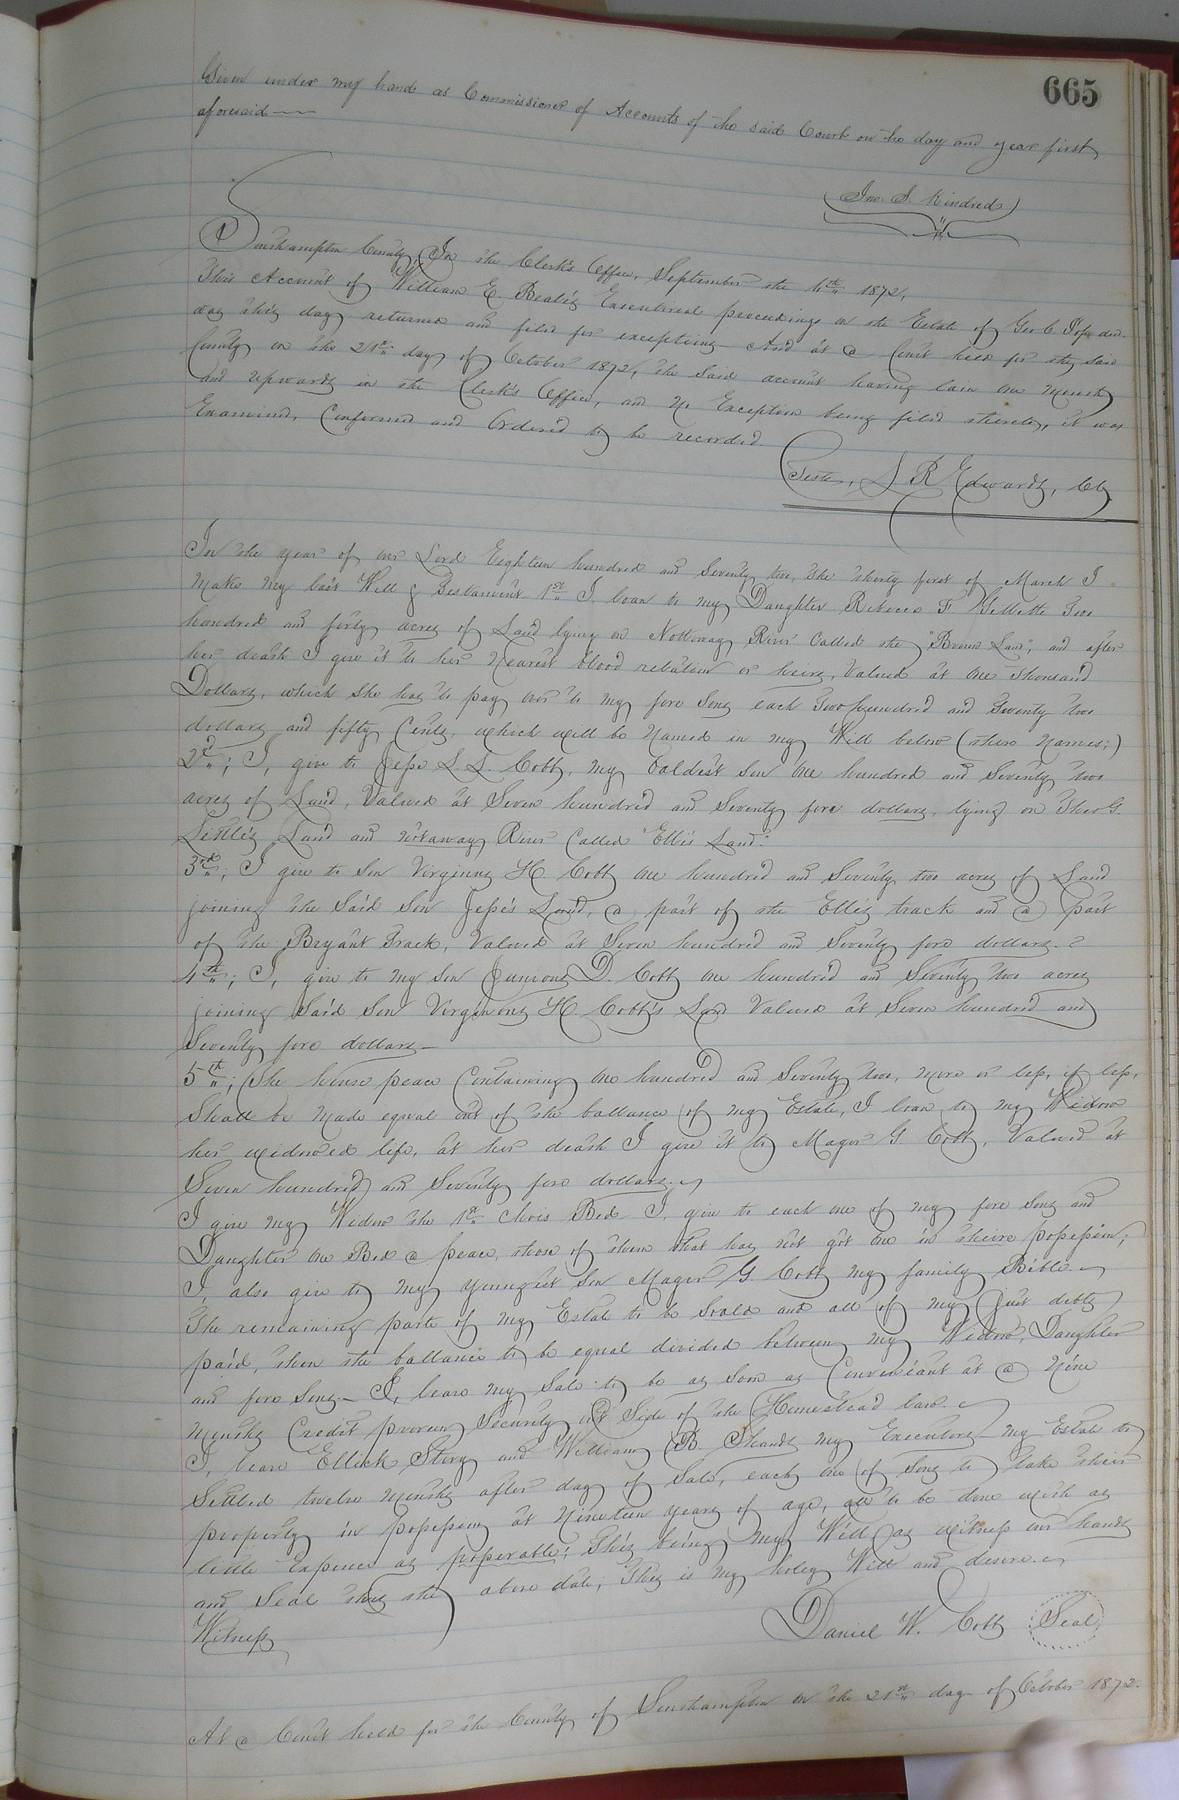 665
Given under my hand as Commissioner of Accounts of the said Court on the day and year first
aforesaid
Jno. S. Kindred
Southampton County, In the Clerk's Office, September the 1872,
This Account of William E. Beal's Executorial proceedings on the Estate of Geo C decd.
was this day returned and filed for exceptions And at a Court held for the said
County on the 21st day of October 1872, the said account having lain one month
and upwards in the Clerk's Office, and no Exceptions being filed thereto, it was
Examined, Confirmed and Ordered to be recorded.
Teste, L R Edwards, Clk
In the year of our Lord Eighteen hundred and Seventy two, the thirty first of March I
Make my last Will & Testament 1st I loan to my Daughter Rebecca F Gillette Two
hundred and forty acres of Land lying on Nottoway River Called the "Brown Land", and after
her death I give it to her Nearest blood relation or heirs, Valued at One thousand
Dollars, which she has to pay over to my fore Sons each Two hundred and Twenty two
dollars and fifty Cents, which will be Named in my Will below (there Names;)
2nd; I, give to Jesse L. L. Cobb, my oaldest son One hundred and Seventy two
acres of Land, Valued at Seven hundred and Seventy fore dollars, lying on Theo G.
Land and notaway River Called "Ellis Land."
3rd; I give to Son Virginus H Cobb One hundred and Seventy two acres of Land
joining the Said Son Jesse's Land, a part of the Ellis track and a part
of the Bryant Track, Valued at Seven hundred and Seventy fore dollars.
4th; I, give to my son Junious D. Cobb One hundred and Seventy two acres
joining Said Son Virginous H. Cobb's Land Valued at Seven hundred and
Seventy fore dollars—
5th; the house peace Containing One hundred and Seventy two, more or less, if less,
Shall be Made equal out of the ballance of my Estate, I loan to my Widow
her widowed life, at her death I give it to Mager G Cobb, Valued at
Seven hundred and Seventy fore dollars.
I give my Widow the 1st Chois Bed I, give to each one of my fore Sons and
Daughter One Bed a peace, those of them that has not got One in theire possession;
I, also give to my youngest Son Mager G Cobb my family Bible.
The remaining parte of my Estate to be Soald and all of my just debts
paid, then the ballance to be equal divided between my Widow, Daughter
and fore Sons. I, leave my Sale to be as Soon as Conveniant at a Nine
Months Credit Security out Side of the Homestead law.
I, leave Ellick Story and William B. Shands my Executors my Estate to
Settled twelve months after day of Sale, each one of Sons to take their
property in possession at Nineteen years of age, all to be done with as
little Expence as posserable; This being my Will as witness our hands
and Seal this the above date; This is my holey Will and desire.
Witness
Daniel W. Cobb Seal
At a Court held for the County of Southampton on the 21st day of October 1872.